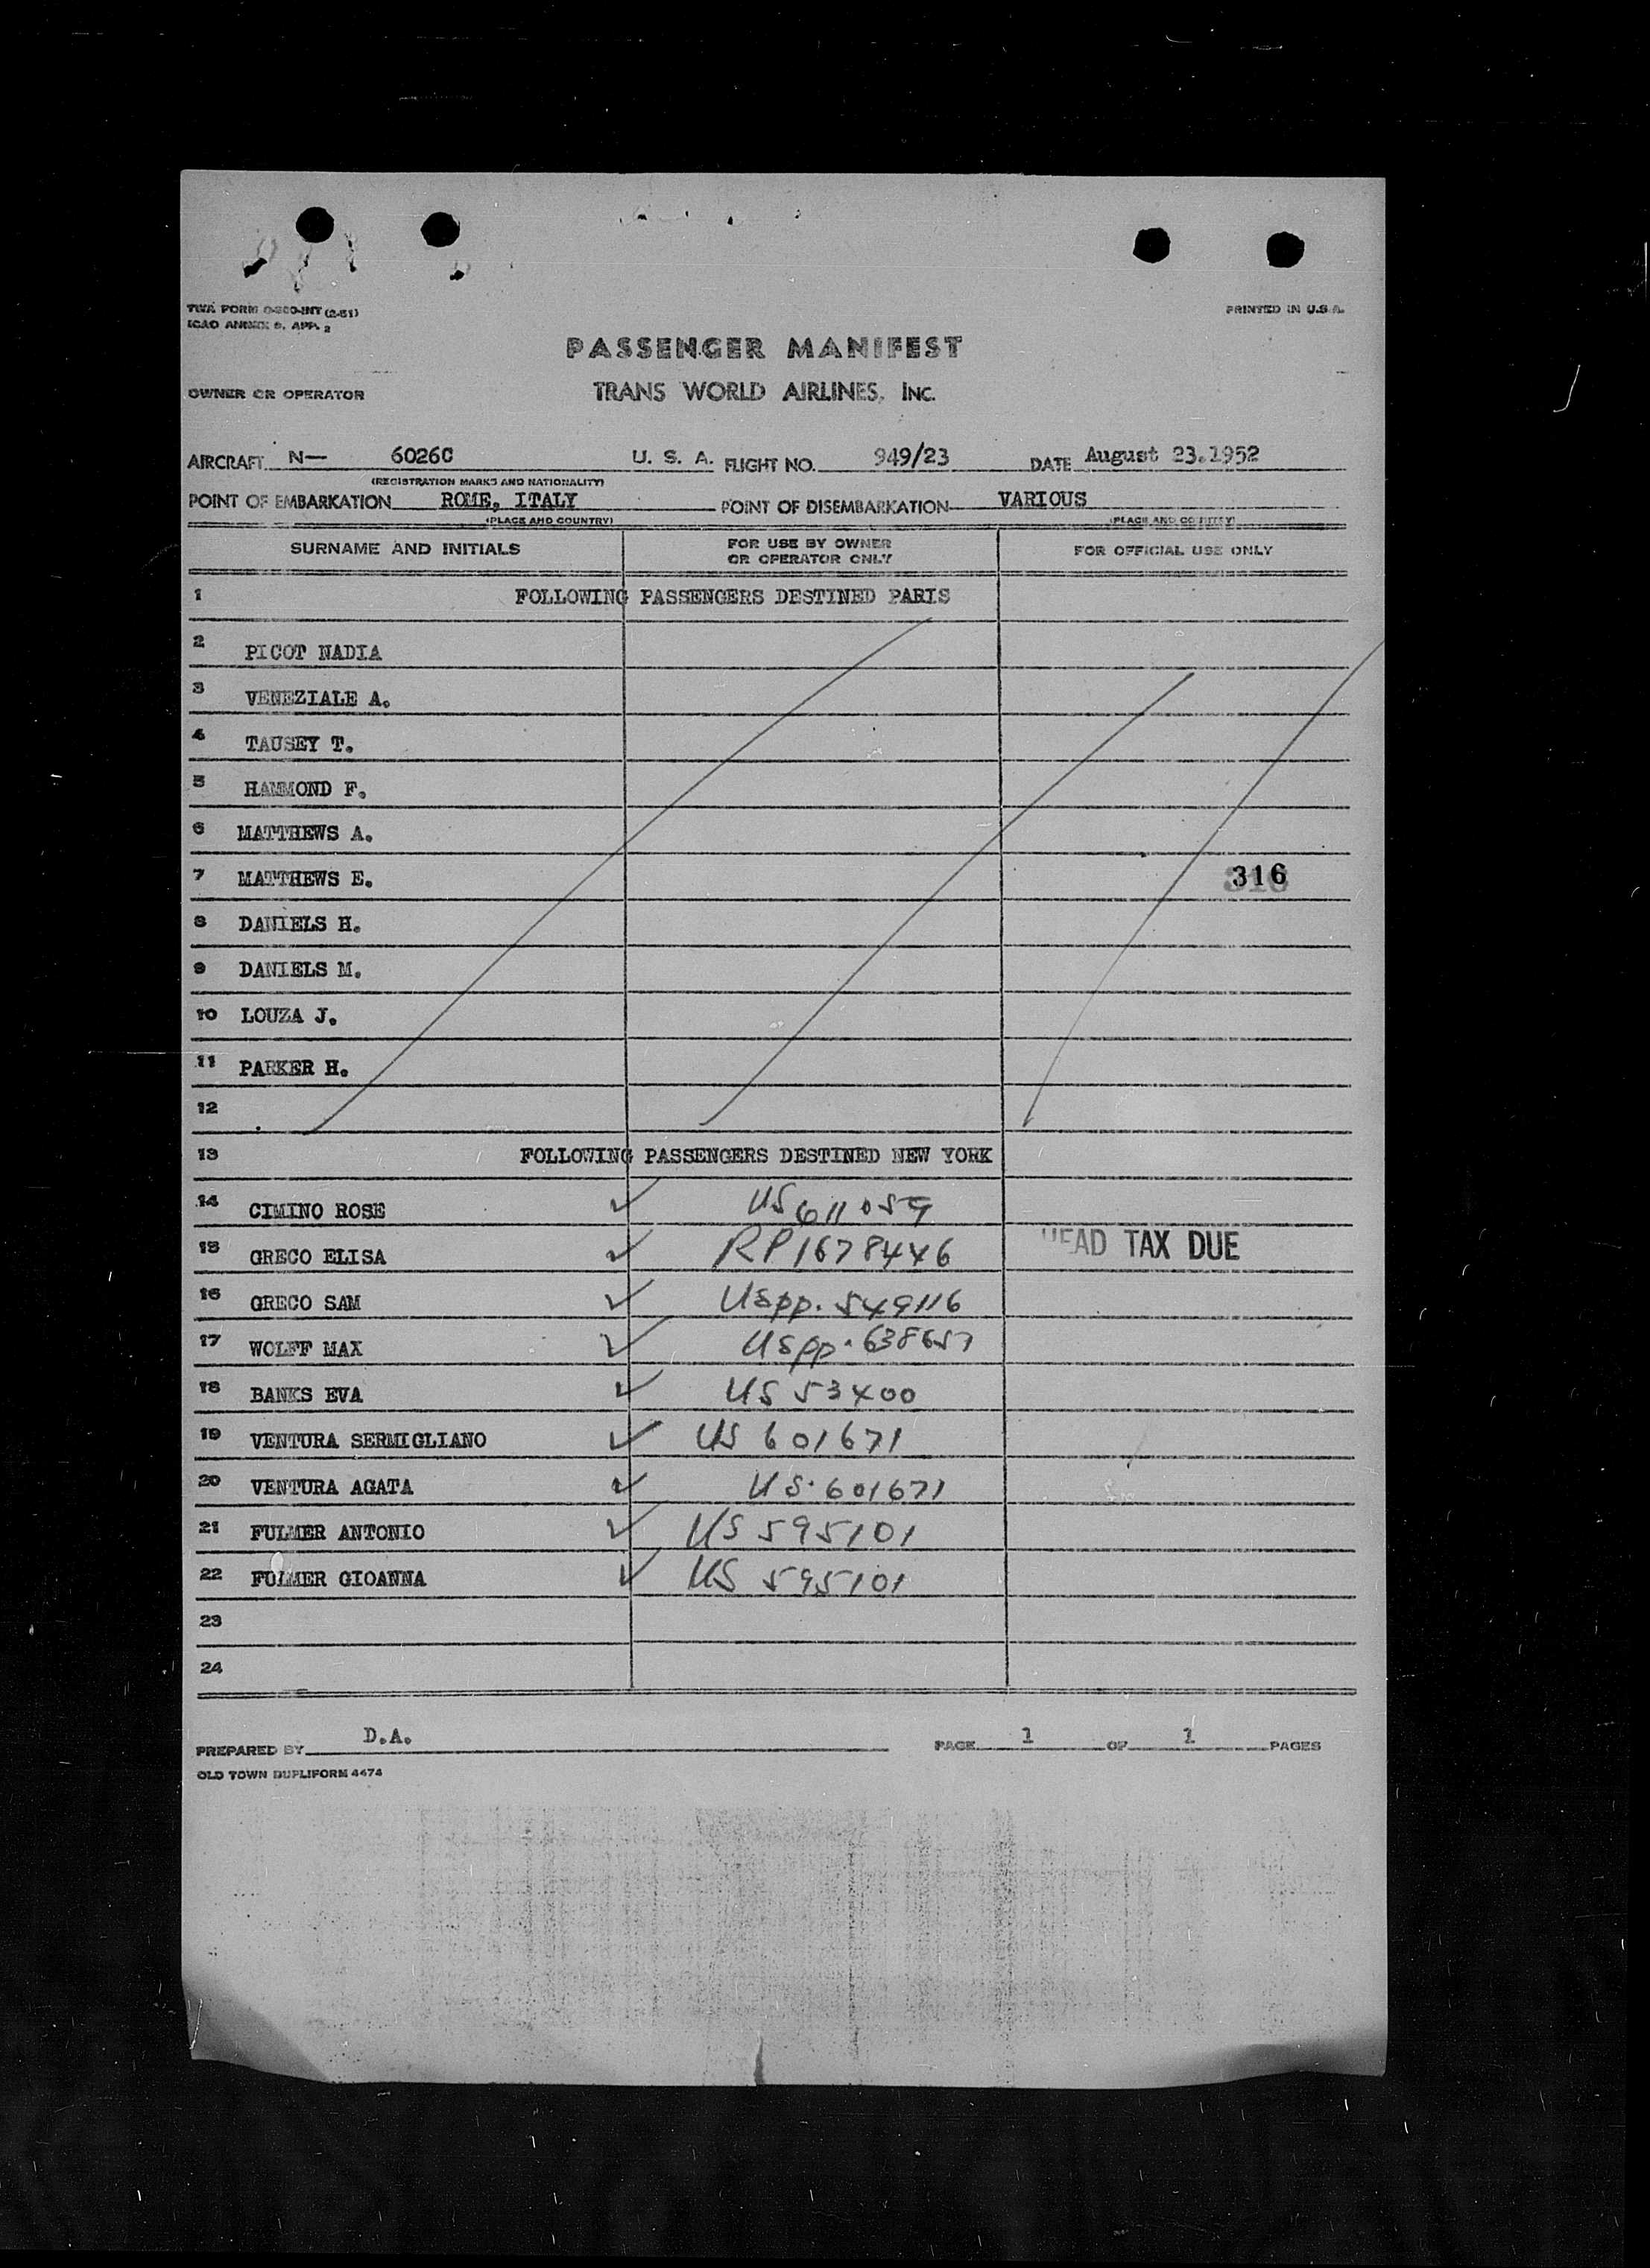 TWA FORM O-800-INT (2-51)
ICAO ANNEX 9, APP. 2
PRINTED IN U.S.A.
PASSENGER MANIFEST
OWNER OR OPERATOR TRANS WORLD AIRLINES, INC.
AIRCRAFT N— 6026C U. S. A. FLIGHT NO. 949/23 DATE August 23.1952
(REGISTRATION MARKS AND NATIONALITY)
POINT OF EMBARKATION ROME, ITALY POINT OF DISEMBARKATION VARIOUS
(PLACE AND COUNTRY) (PLACE AND COUNTRY)
SURNAME AND INITIALS FOR USE BY OWNER OR OPERATOR ONLY FOR OFFICIAL USE ONLY
1 FOLLOWING PASSENGERS DESTINED PARIS
2 PICOT NADIA
3 VENEZIALE A.
4 TAUSEY T.
5 HAMMOND F.
6 MATTHEWS A.
7 MATTHEWS E. 316
8 DANIELS H.
9 DANIELS M.
10 LOUZA J.
11 PARKER H.
12
13 FOLLOWING PASSENGERS DESTINED NEW YORK
14 CIMINO ROSE ✓ US 611059
15 GRECO ELISA ✓ RP 1678446 HEAD TAX DUE
16 GRECO SAM ✓ USpp. 549116
17 WOLFF MAX ✓ USpp. 638657
18 BANKS EVA ✓ US 53400
19 VENTURA SERMIGLIANO ✓ US 601671
20 VENTURA AGATA ✓ US. 601671
21 FULMER ANTONIO ✓ US 595101
22 FULMER GIOANNA ✓ US 595101
23
24
PREPARED BY D.A. PAGE 1 OF 1 PAGES
OLD TOWN DUPLIFORM 4474